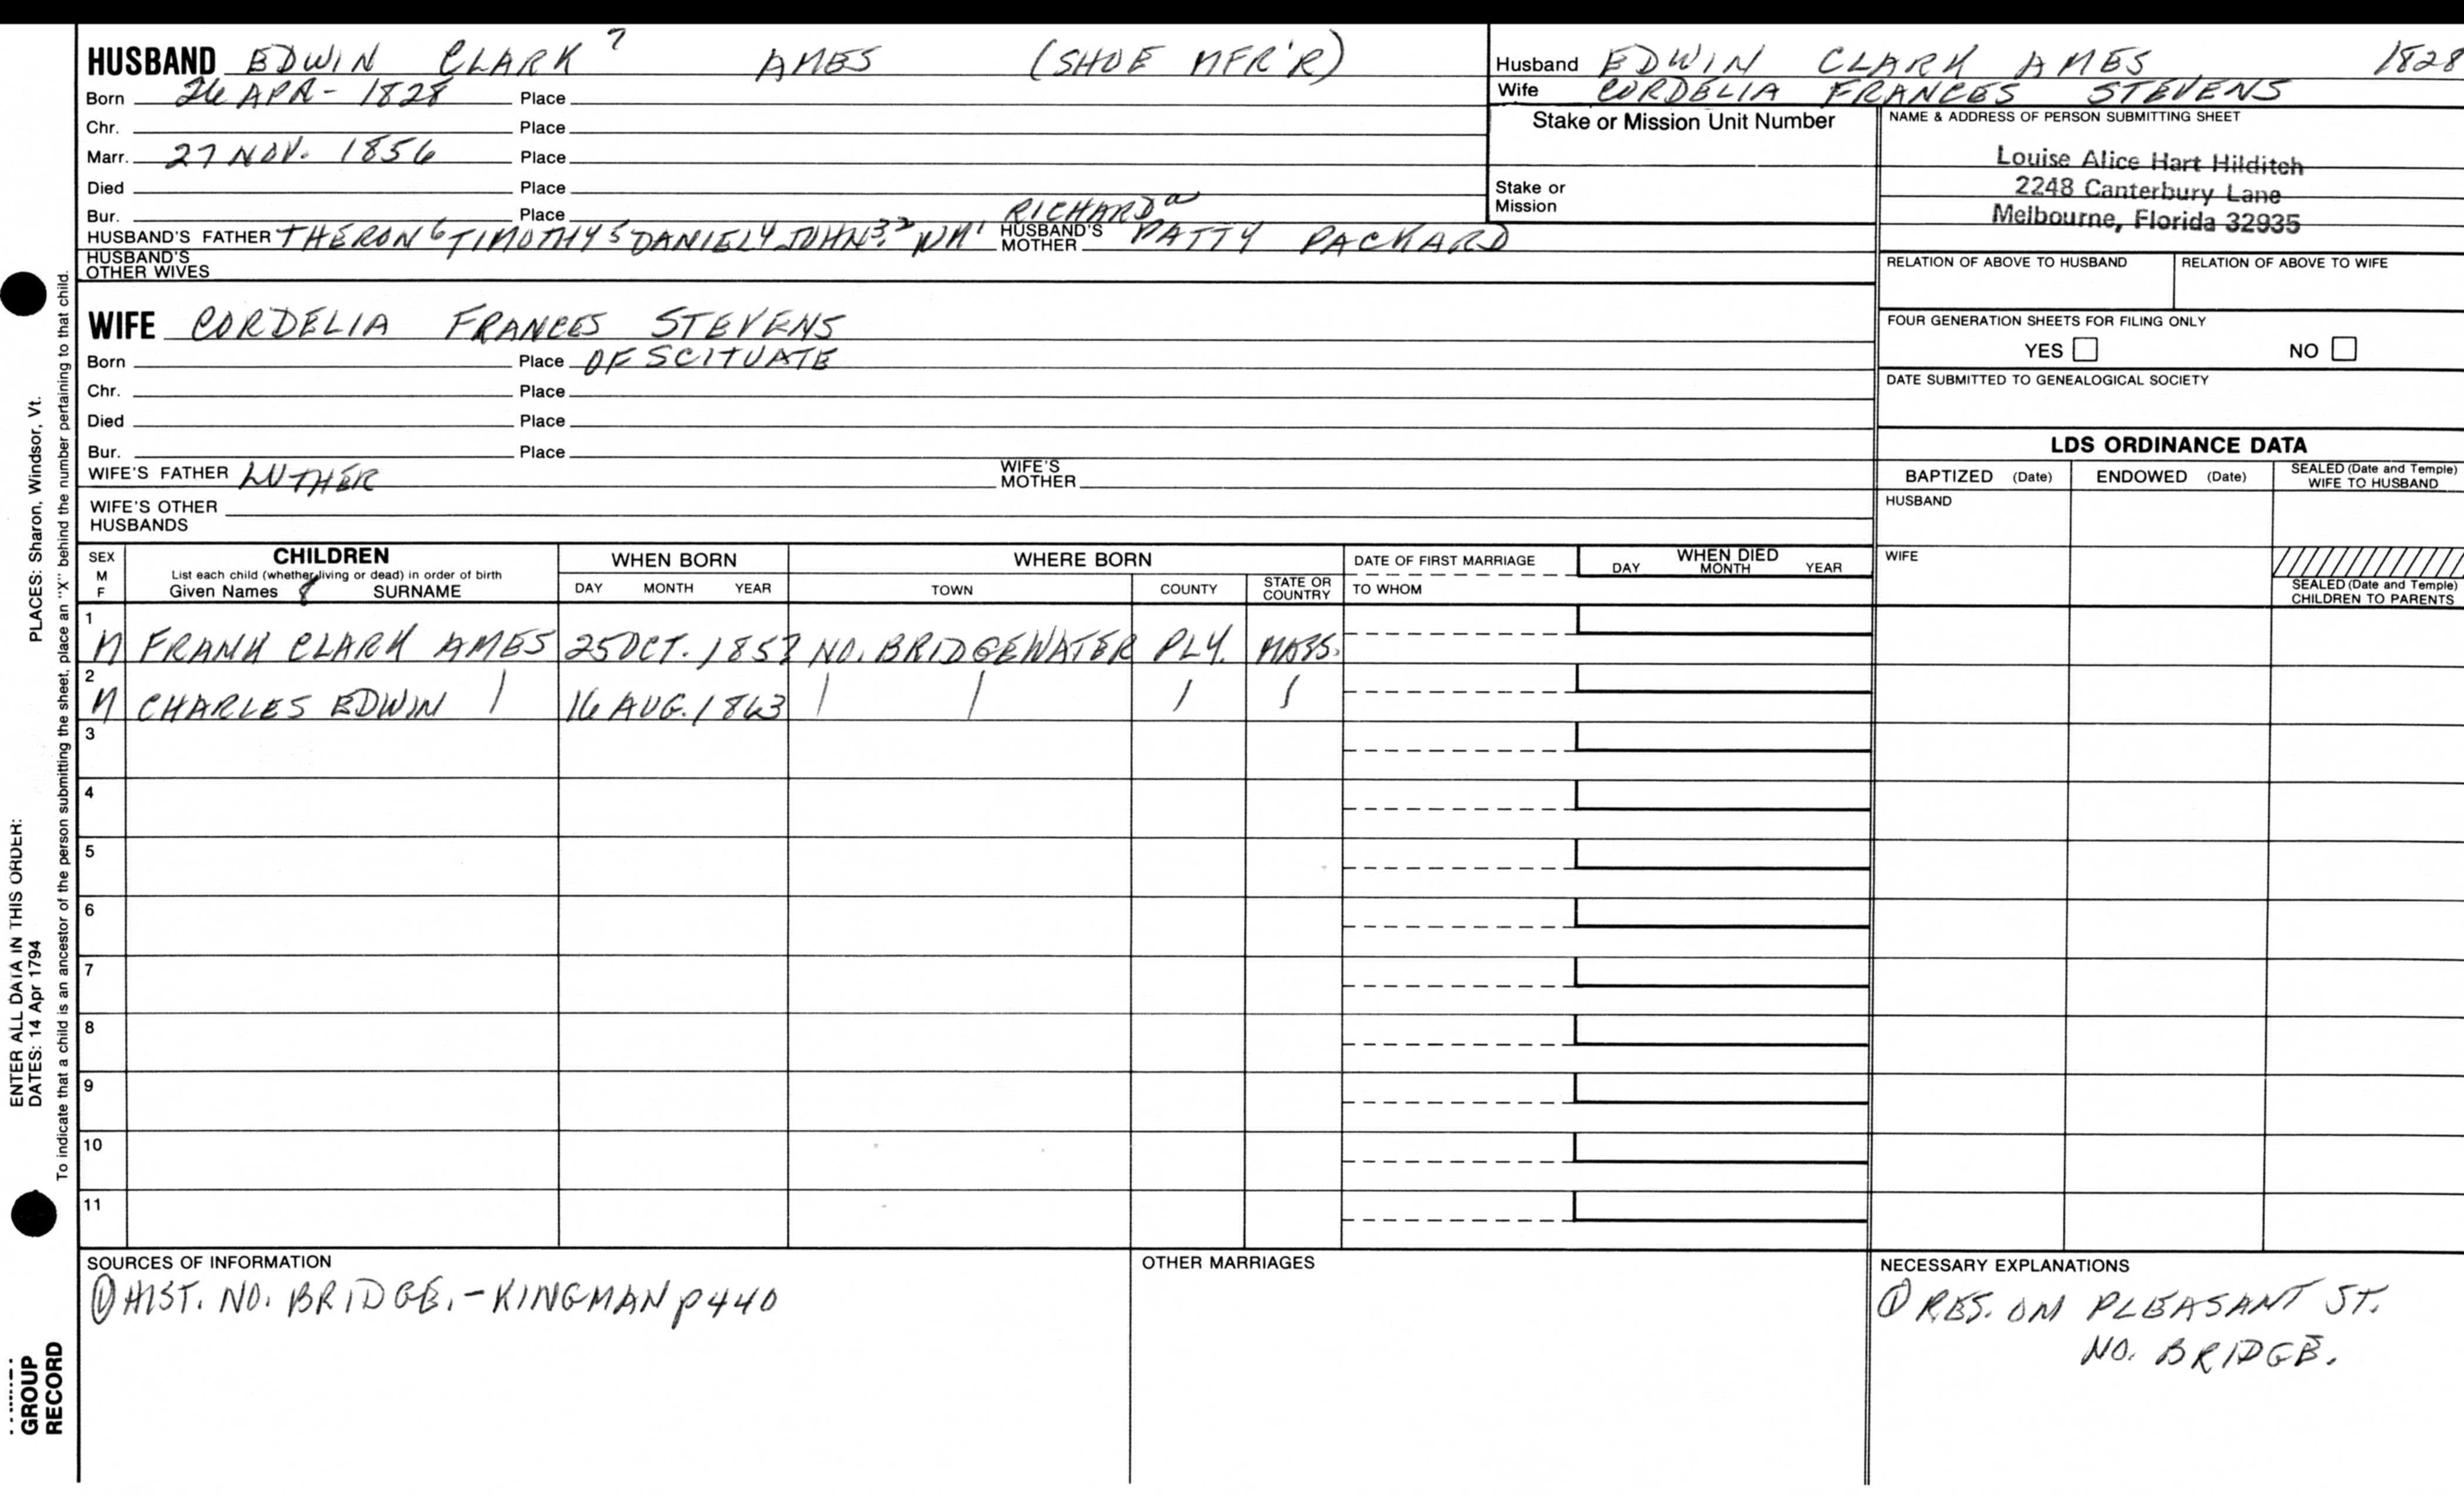 HUSBAND EDWIN CLARK 7 AMES (SHOE MFR'R)
Born 26 APR - 1828 Place
Chr. Place
Marr. 27 NOV. 1856 Place
Died Place
Bur. Place
HUSBAND'S FATHER THERON 6 TIMOTHY 5 DANIEL 4 JOHN 3 2 WM 1 HUSBAND'S MOTHER RICHARD a PATTY PACKARD
HUSBAND'S OTHER WIVES
Husband EDWIN CLARK AMES 1828
Wife CORDELIA FRANCES STEVENS
Stake or Mission Unit Number
Stake or Mission
NAME & ADDRESS OF PERSON SUBMITTING SHEET
Louise Alice Hart Hilditch
2248 Canterbury Lane
Melbourne, Florida 32935
RELATION OF ABOVE TO HUSBAND RELATION OF ABOVE TO WIFE
FOUR GENERATION SHEETS FOR FILING ONLY
YES NO
DATE SUBMITTED TO GENEALOGICAL SOCIETY
WIFE CORDELIA FRANCES STEVENS
Born Place OF SCITUATE
Chr. Place
Died Place
Bur. Place
WIFE'S FATHER LUTHER WIFE'S MOTHER
WIFE'S OTHER HUSBANDS
LDS ORDINANCE DATA
BAPTIZED (Date) ENDOWED (Date) SEALED (Date and Temple) WIFE TO HUSBAND
HUSBAND
WIFE
SEALED (Date and Temple) CHILDREN TO PARENTS
SEX M F
CHILDREN
List each child (whether living or dead) in order of birth
Given Names 8 SURNAME
WHEN BORN
DAY MONTH YEAR
WHERE BORN
TOWN COUNTY STATE OR COUNTRY
DATE OF FIRST MARRIAGE
TO WHOM
WHEN DIED
DAY MONTH YEAR
1 M FRANK CLARK AMES 25 OCT. 1857 NO. BRIDGEWATER PLY. MASS.
2 M CHARLES EDWIN | 16 AUG. 1863 | | | |
3
4
5
6
7
8
9
10
11
SOURCES OF INFORMATION
① HIST. NO. BRIDGE. - KINGMAN p 440
OTHER MARRIAGES
NECESSARY EXPLANATIONS
① RES. ON PLEASANT ST.
NO. BRIDGE.
ENTER ALL DATA IN THIS ORDER:
DATES: 14 Apr 1794 PLACES: Sharon, Windsor, Vt.
To indicate that a child is an ancestor of the person submitting the sheet, place an "X" behind the number pertaining to that child.
GROUP
RECORD